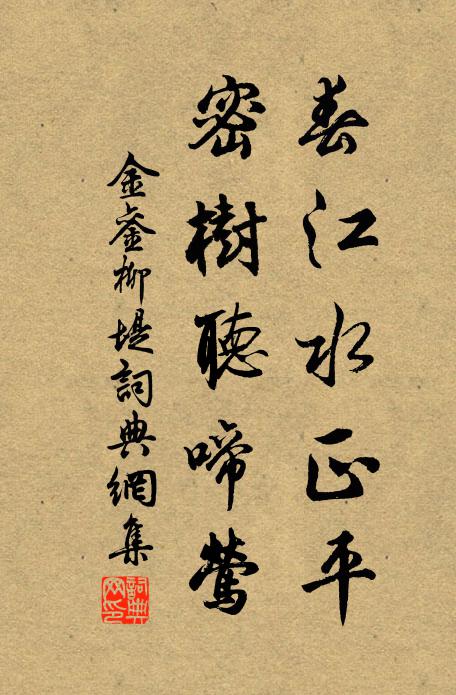 春江水正平
密樹聽啼鶯
金鑾柳堤詞典網集
詞典网印